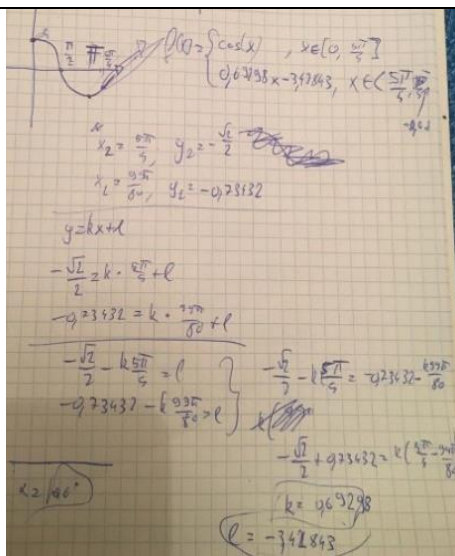 f(x) = { cos(x) , x∈[0, 5π/4]
0,69298x - 3,42843, x∈(5π/4,
π/2 π 5π/4
x₂ = 5π/4, y₂ = -√2/2
x₁ = 99π/80, y₁ = -0,73432
y = kx + l
-√2/2 = k · 5π/4 + l
-0,73432 = k · 99π/80 + l
-√2/2 - k 5π/4 = l
-0,73432 - k 99π/80 = l
-√2/2 - k 5π/4 = -0,73432 - k 99π/80
-√2/2 + 0,73432 = k(5π/4 - 99π/80
k = 0,69298
l = -3,42843